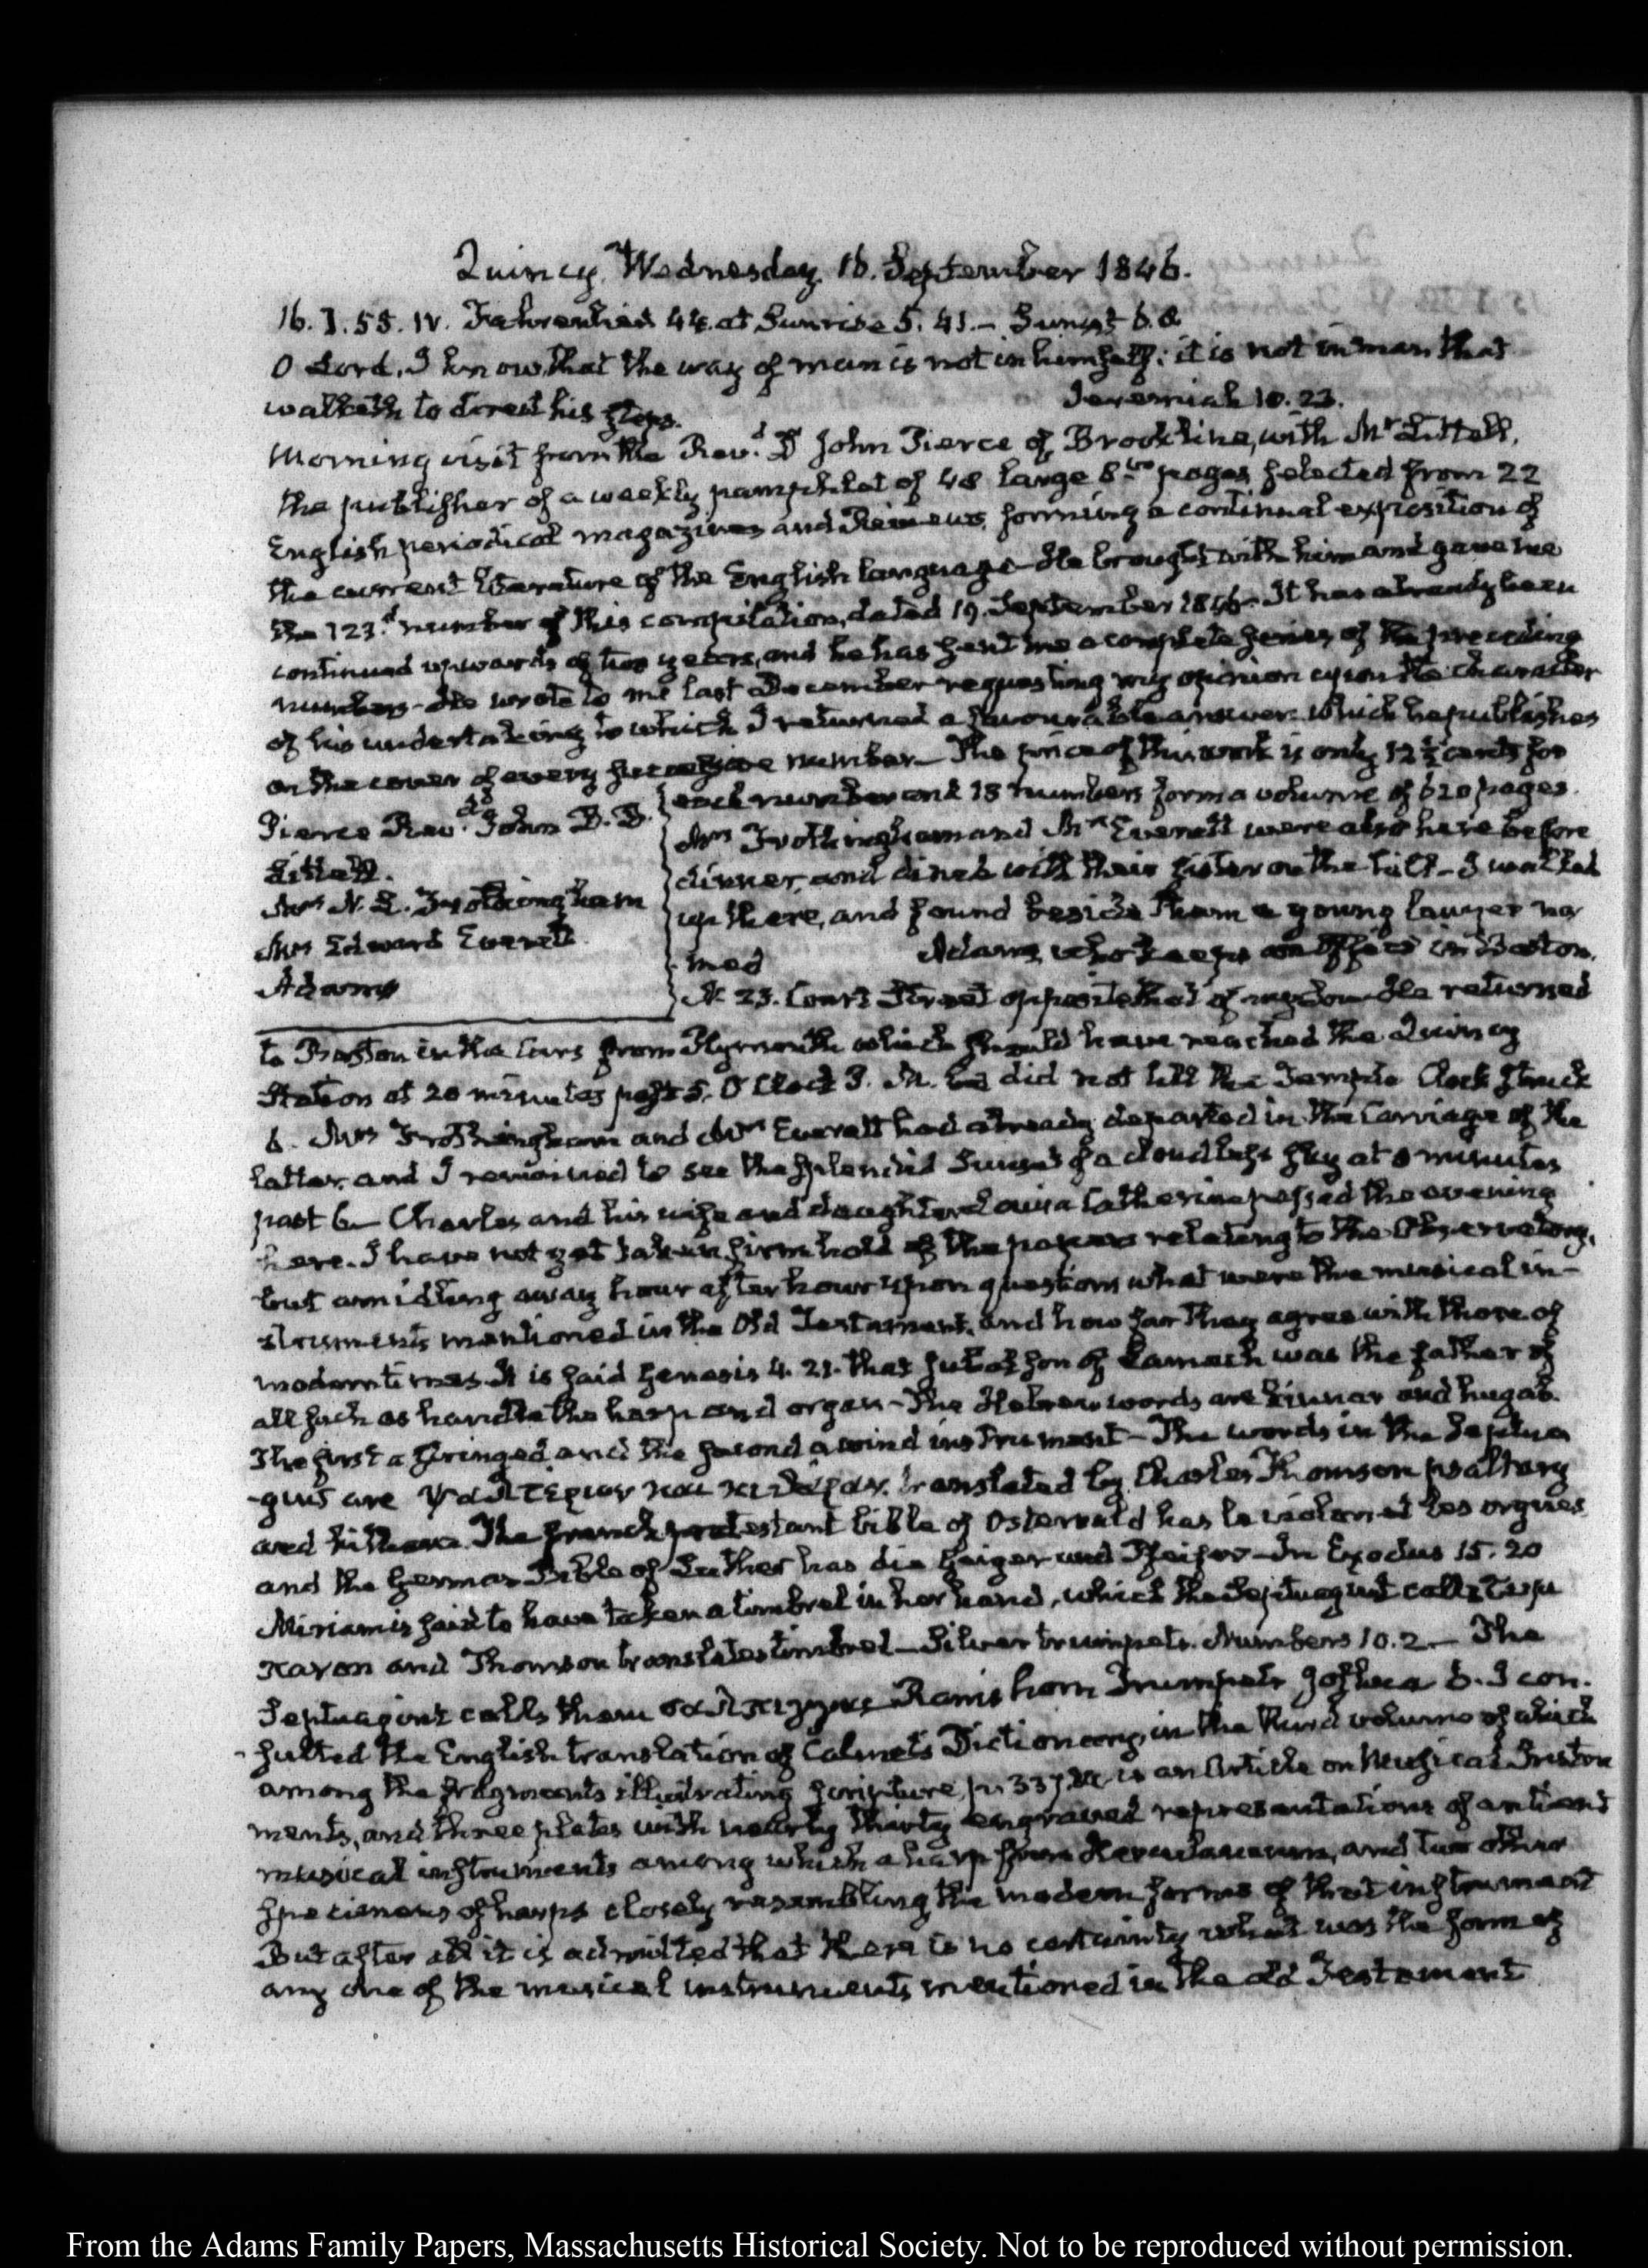 Quincy. Wednesday 16. September 1846.
16. I. 55. IV. Fahrenheit 44. at Sunrise 5. 41.— Sunset 6. 8
O Lord, I know that the way of man is not in himself: it is not in man that
walketh to direct his steps. Jeremiah 10. 23.
Morning visit from the Rev.d Dr John Pierce of Brookline, with Mr Littell,
the publisher of a weekly pamphlet of 48 large 8.vo pages selected from 22
English periodical magazines and Reviews, forming a continual exposition of
the current literature of the English language— He brought with him and gave me
the 123.d number of this compilation, dated 19. September 1846— It has already been
continued upwards of two years, and he has sent me a complete series of the preceding
numbers— He wrote to me last December requesting my opinion upon the character
of his undertaking to which I returned a favourable answer which he publishes
on the cover of every successive number— The price of this work is only 12 ½ cents for
Pierce Rev.d John D.D.
Littell.
Mrs N. L. Frothingham
Mrs Edward Everett
Adams
each number and 13 numbers form a volume of 620 pages.
Mrs Frothingham and Mrs Everett were also here before
dinner, and dined with their sister on the hill— I walked
up there, and found beside them a young lawyer na
med Adams, who keeps an Office in Boston,
N. 23. Court Street opposite that of my Son— He returned
to Boston in the Cars from Plymouth which should have reached the Quincy
Station at 20 minutes past 5. O'Clock P. M. did not till the Temple Clock struck
6. Mrs Frothingham and Mrs Everett had already departed in the Carriage of the
latter, and I remained to see the splendid Sunset of a cloudless sky at 8 minutes
past 6— Charles and his wife and daughter Louisa Catherine passed the evening
here. I have not yet taken firm hold of the papers relating to the Observatory,
but am idling away hour after hour upon questions what were the musical in-
struments mentioned in the Old Testament, and how far they agree with those of
modern times. It is said Genesis 4. 21. that Jubal son of Lamech was the father of
all such as handle the harp and organ— The Hebrew words are kinnor and hugab.
The first a stringed and the second a wind instrument— The words in the Septua
-gint are ψαλτεριον και κιθαραν. translated by Charles Thomson psaltery
and kithara. The french protestant bible of Ostervald has le violon et les orgues
and the German Bible of Luther has die Geiger und Pfeifer— In Exodus 15. 20
Miriam is said to have taken a timbrel in her hand, which the Septuagint calls τυμ
πανον and Thomson translates timbrel— Silver trumpets. Numbers 10. 2.— The
Septuagint calls them σαλπιγγας Rams horn Trumpets Joshua 6. I con-
-sulted the English translation of Calmet's Dictionary, in the third volume of which
among the fragments illustrating scripture, p. 337 &c is an Article on Musical Instru
ments, and three plates with nearly thirty engraved representations of antient
musical instruments among which a harp from Herculaneum, and two other
specimens of harps closely resembling the modern forms of that instrument
But after all it is admitted that there is no certainty what was the form of
any one of the musical instruments mentioned in the old Testament
From the Adams Family Papers, Massachusetts Historical Society. Not to be reproduced without permission.